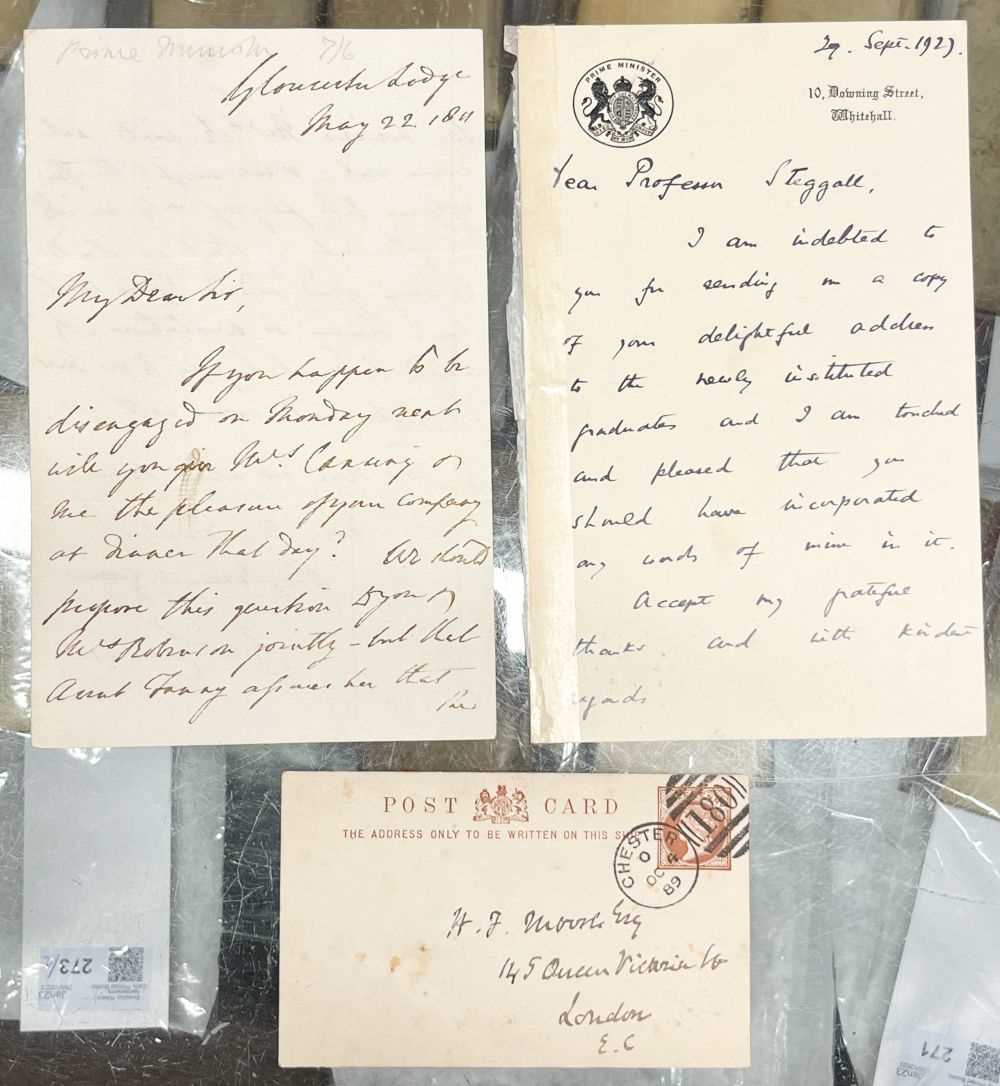 Prime Minister 7/6
Gloucester Lodge
May 22 1811
My Dear Sir,
If you happen to be
disengaged on Monday next
will you give Mrs. Canning &
me the pleasure of your company
at dinner that day? We should
propose this question to you &
Mrs Robinson jointly - but that
Aunt Fanny assures her that
29. Sept. 1927.
PRIME MINISTER
10, Downing Street,
Whitehall.
Dear Professor Steggall,
I am indebted to
you for sending me a copy
of your delightful address
to the newly instituted
graduates and I am touched
and pleased that you
should have incorporated
any words of mine in it.
Accept my grateful
thanks and with kindest
regards
POST CARD
THE ADDRESS ONLY TO BE WRITTEN ON THIS
180
CHESTER
OC 4
89
145 Queen Victoria St
London
E.C
273/
Jan23
271
Jan23